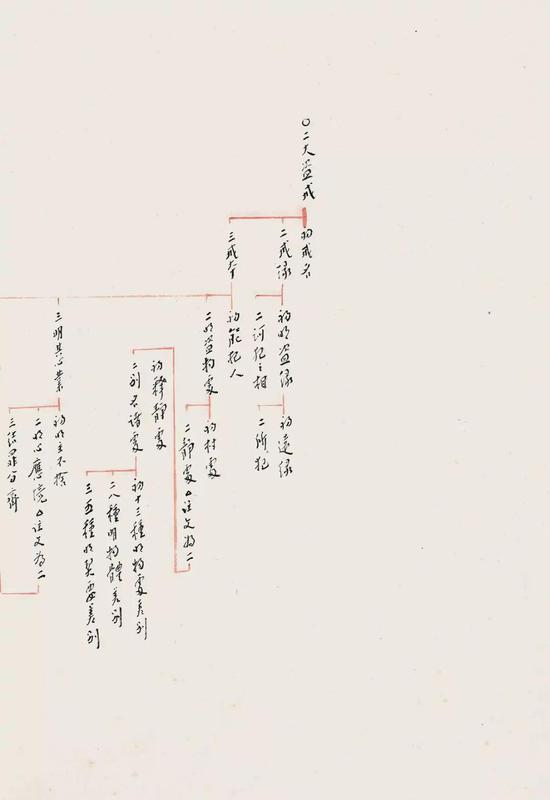 〇二大盜戒
初戒名
二戒緣
三戒本
初明盜緣
二所犯之相
初遠緣
二所犯
初能犯人
二明盜物處
初村處
二靜處△註文為二
初釋靜處
二別名諸處
初十三種明物處差別
二八種明物體差別
三五種明契要差別
三明其心業
初明主不捨
二明心應境△註文為二
三結罪分齊